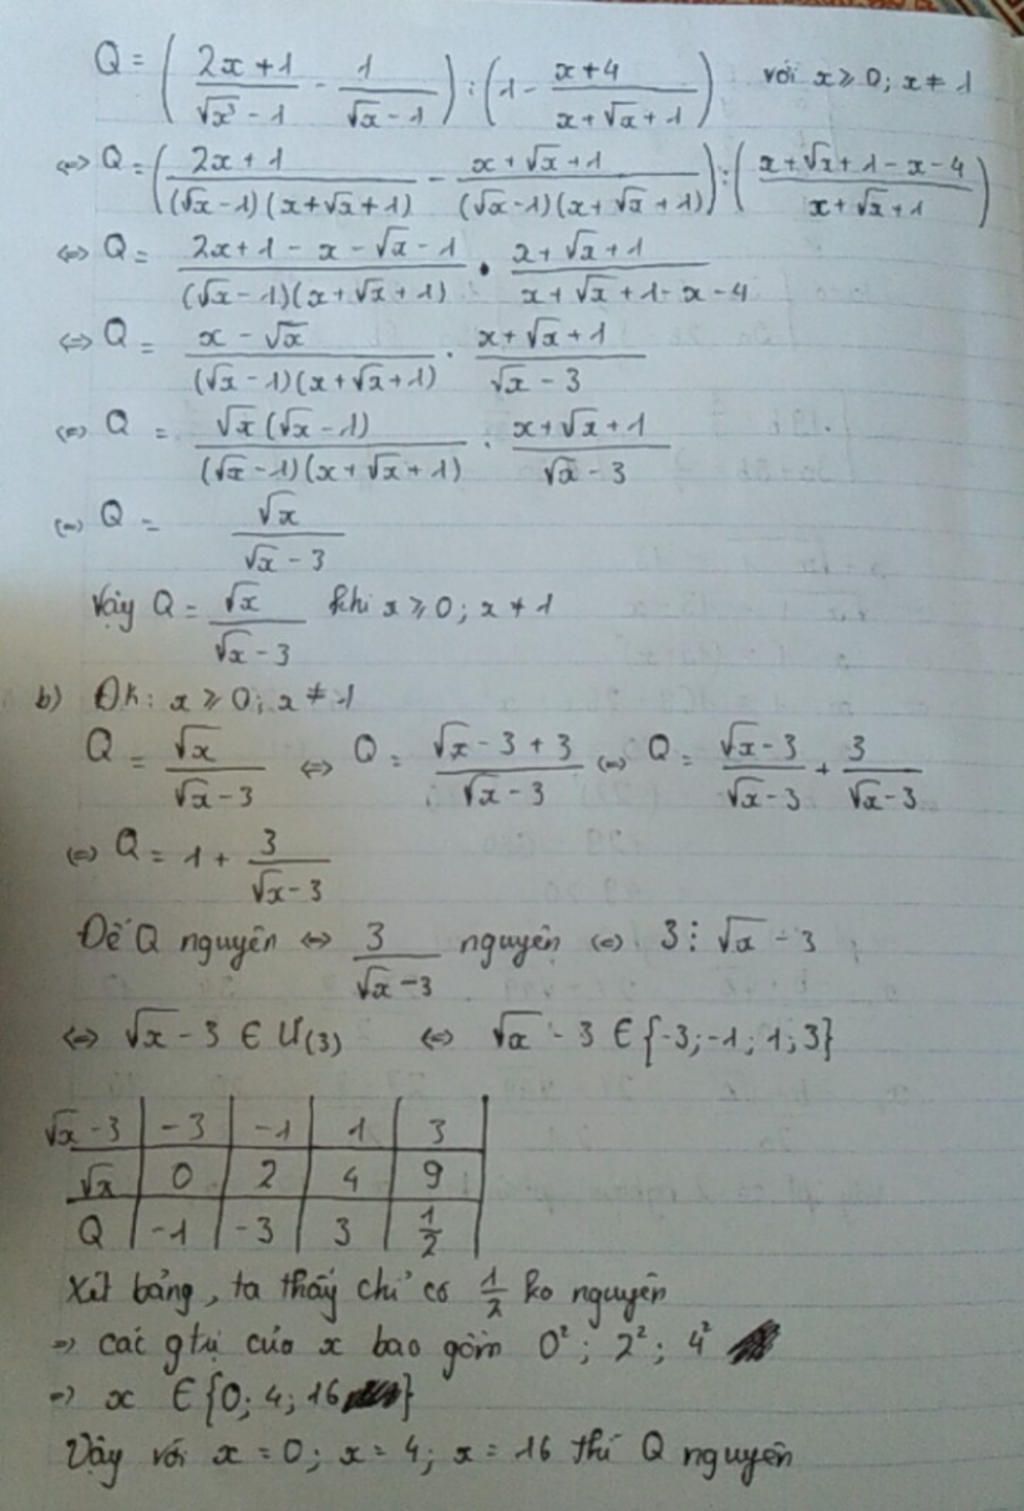 Q = ( (2x+1)/(√x³ - 1) - 1/(√x - 1) ) : ( 1 - (x+4)/(x+√x+1) ) với x ≥ 0; x ≠ 1
<=> Q = ( (2x+1)/((√x-1)(x+√x+1)) - (x+√x+1)/((√x-1)(x+√x+1)) ) : ( (x+√x+1-x-4)/(x+√x+1) )
<=> Q = (2x+1-x-√x-1)/((√x-1)(x+√x+1)) • (x+√x+1)/(x+√x+1-x-4)
<=> Q = (x-√x)/((√x-1)(x+√x+1)) . (x+√x+1)/(√x-3)
<=> Q = (√x(√x-1))/((√x-1)(x+√x+1)) . (x+√x+1)/(√x-3)
<=> Q = √x/(√x-3)
Vậy Q = √x/(√x-3) khi x ≥ 0; x ≠ 1
b) Đk: x ≥ 0; x ≠ 1
Q = √x/(√x-3) <=> Q = (√x-3+3)/(√x-3) <=> Q = (√x-3)/(√x-3) + 3/(√x-3)
<=> Q = 1 + 3/(√x-3)
Để Q nguyên <=> 3/(√x-3) nguyên <=> 3 ⋮ √x - 3
<=> √x - 3 ∈ Ư(3) <=> √x - 3 ∈ {-3; -1; 1; 3}
√x-3 | -3 | -1 | 1 | 3
√x | 0 | 2 | 4 | 9
Q | -1 | -3 | 3 | 1/2
Xét bảng, ta thấy chỉ có 1/2 ko nguyên
=> các gtrị của x bao gồm 0²; 2²; 4²
=> x ∈ {0; 4; 16}
Vậy với x = 0; x = 4; x = 16 thì Q nguyên